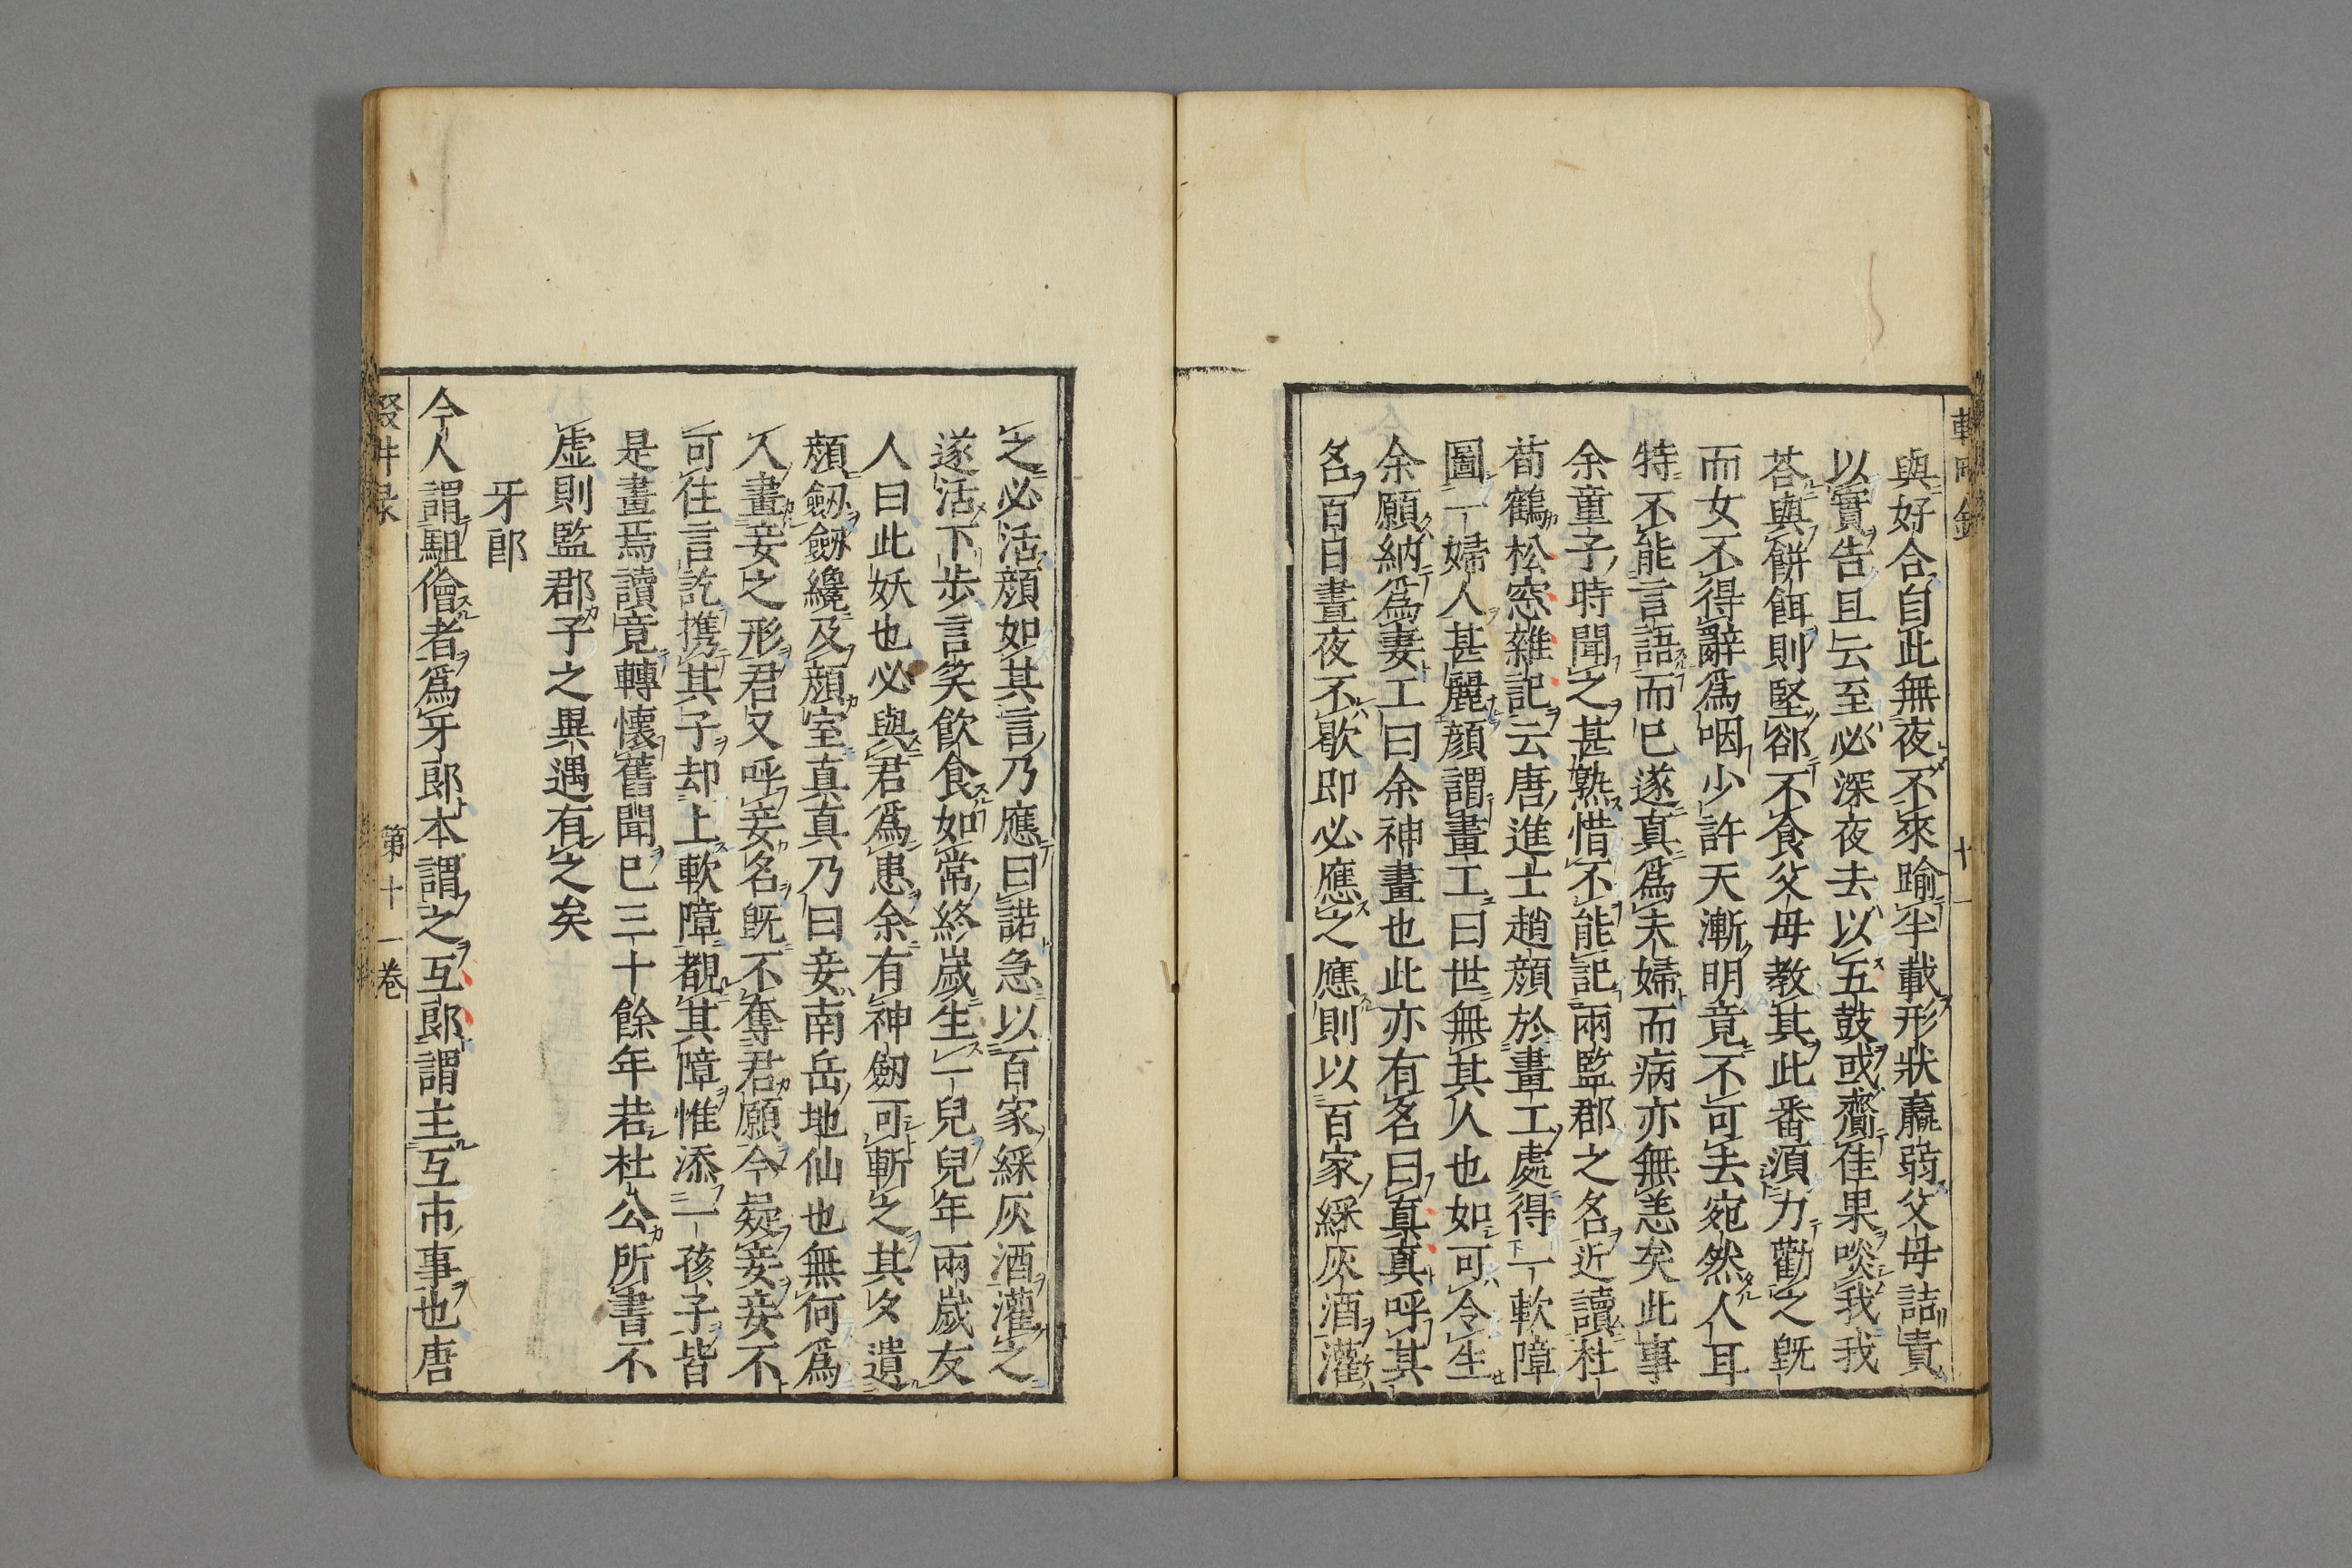 與好合自此無夜不來踰半載形狀羸弱父母詰責
以實告且云至必深夜去以五鼓或齎佳果啖我我
荅與餅餌則堅郤不食父母教其此番須力勸之既
而女不得辭爲咽少許天漸明竟不可去宛然人耳
特不能言語而已遂真爲夫婦而病亦無恙矣此事
余童子時聞之甚熟惜不能記兩監郡之名近讀杜
荀鶴松窓雜記云唐進士趙顔於畫工處得一軟障
圖一婦人甚麗顔謂畫工曰世無其人也如可令生
余願納爲妻工曰余神畫也此亦有名曰真真呼其
名百日晝夜不歇即必應之應則以百家綵灰酒灌
之必活顔如其言乃應曰諾急以百家綵灰酒灌之
遂活下歩言笑飲食如常終嵗生一兒兒年兩嵗友
人曰此妖也必與君爲患余有神劒可斬之其夕遺
顔劒劒纔及顔室真真乃曰妾南岳地仙也無何爲
人畫妾之形君又呼妾名既不奪君願今疑妾妾不
可住言訖携其子却上軟障覩其障惟添一孩子皆
是畫焉讀竟轉懷舊聞已三十餘年若杜公所書不
虚則監郡子之異遇有之矣
牙郎
今人謂駔儈者爲牙郎本謂之互郎謂主互市事也唐
第十一卷
十一